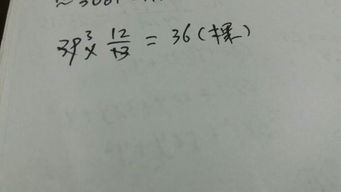 39 × 12/13 = 36(棵)